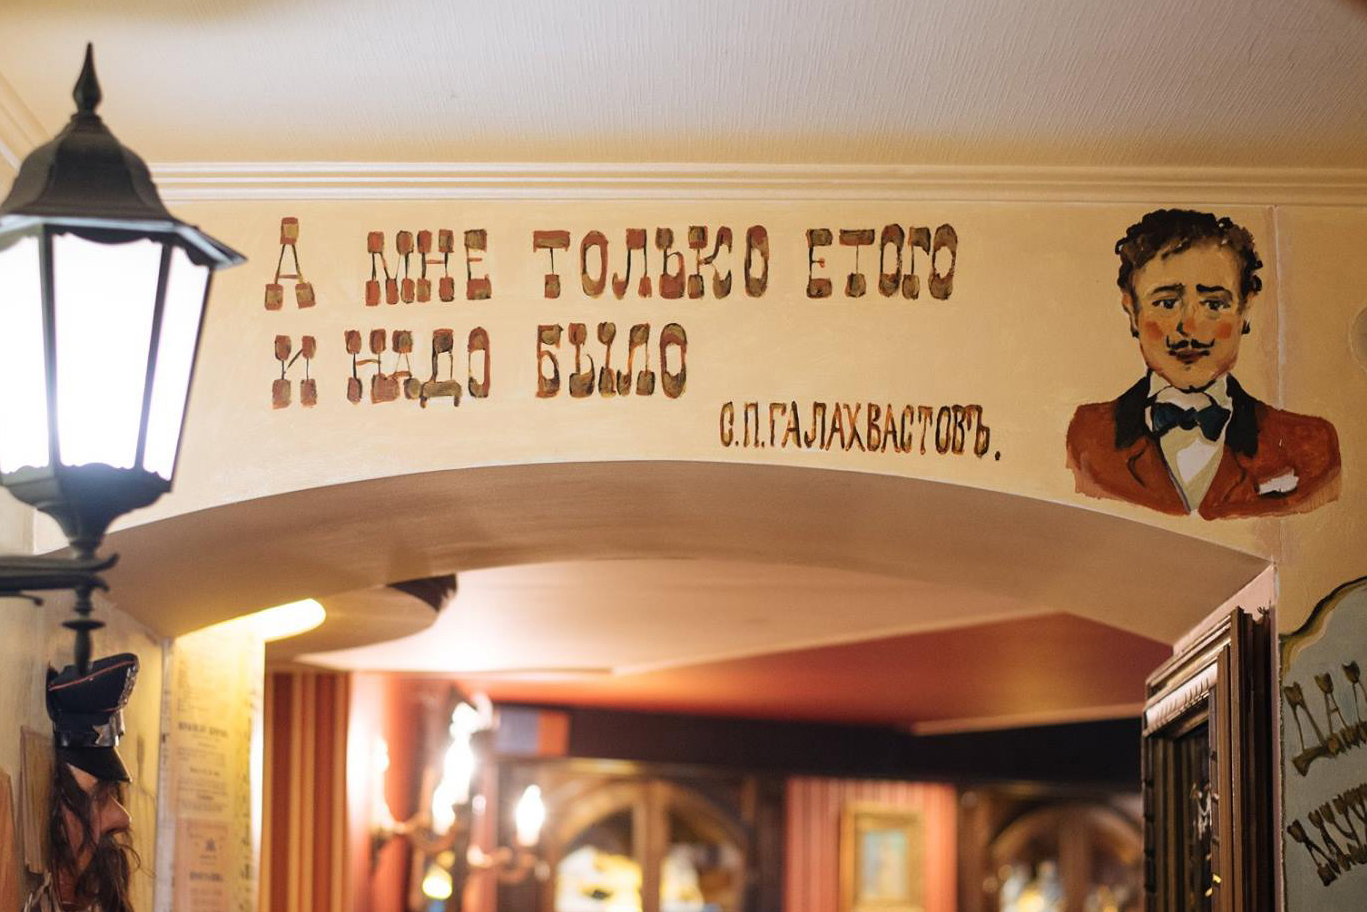 А МНЕ ТОЛЬКО ЕТОГО
И НАДО БЫЛО
С.П.ГАЛАХВАСТОВЪ.